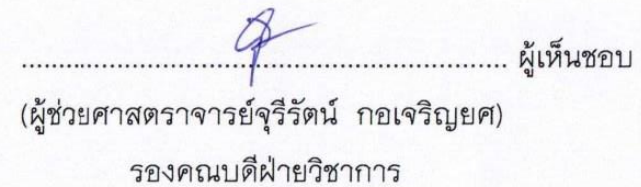 ........................................................... ผู้เห็นชอบ
(ผู้ช่วยศาสตราจารย์จุรีรัตน์ กอเจริญยศ)
รองคณบดีฝ่ายวิชาการ